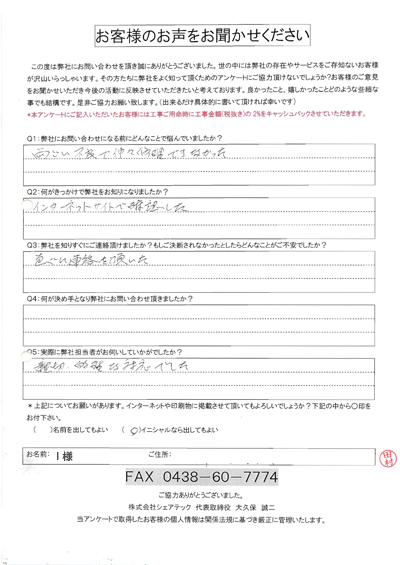 お客様のお声をお聞かせください
この度は弊社にお問い合わせを頂き誠にありがとうございました。世の中には弊社の存在やサービスをご存知ないお客様
が沢山いらっしゃいます。その方たちに弊社をよく知って頂くためのアンケートにご協力頂けないでしょうか？お客様のご意見
をお聞かせいただき今後の活動に反映させていただきたいと考えております。良かったこと、嬉しかったことどのような些細な
事でも結構です。是非ご協力お願い致します。（出来るだけ具体的に書いて頂ければ幸いです）
*本アンケートにご記入いただいたお客様には工事ご用命時に工事金額（税抜き）の2%をキャッシュバックさせていただきます。
Q1：弊社にお問い合わせになる前にどんなことで悩んでいましたか？
できなかった
Q2：何がきっかけで弊社をお知りになりましたか？
インターネットサイトで確認した
Q3：弊社を知りすぐにご連絡頂けましたか？もしご決断されなかったとしたらどんなことがご不安でしたか？
直ぐに連絡を頂いた
Q4：何が決め手となり弊社にお問い合わせ頂きましたか？
Q5：実際に弊社担当者がお伺いしていかがでしたか？
親切 な対応でした
＊上記についてお願いがあります。インターネットや印刷物に掲載させて頂いてもよろしいでしょうか？下記の中から〇印を
お付下さい。
（　）名前を出してもよい　（〇）イニシャルなら出してもよい
お名前： I 様　ご住所：
田村
FAX 0438-60-7774
ご協力ありがとうございました。
株式会社シェアテック 代表取締役 大久保 誠二
当アンケートで取得したお客様の個人情報は関係法規に基づき厳正に管理いたします。